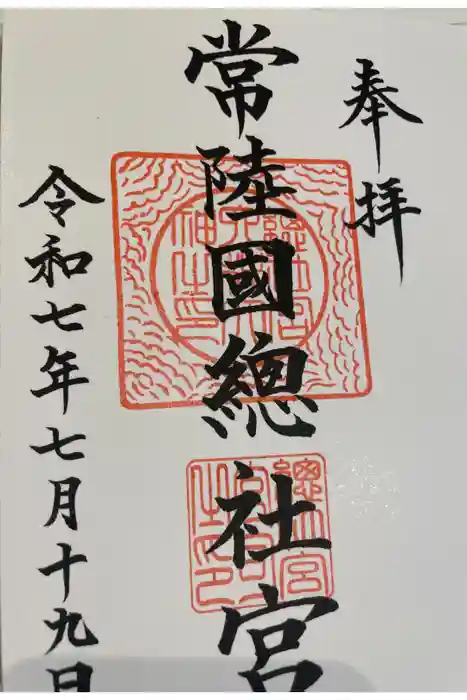 奉拝
常陸國總社宮
令和七年七月十九日